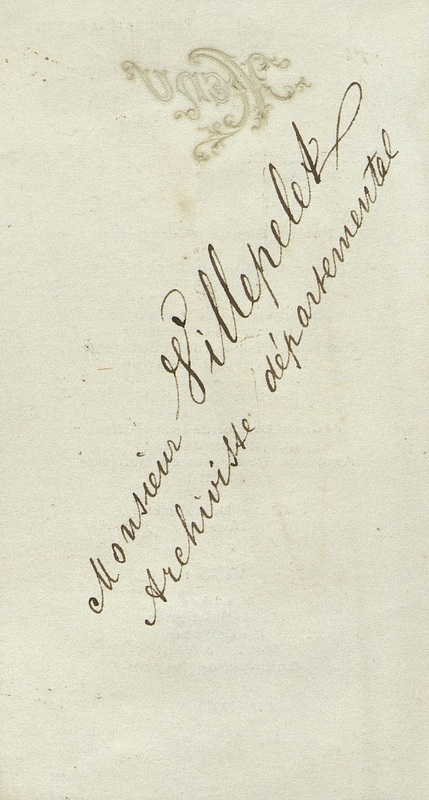 Menu
Monsieur Villepelet
Archiviste départemental